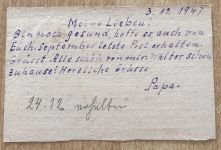 3.12.1947
Meine Lieben!
Bin noch gesund, hoffe es auch von
Euch. September letzte Post erhalten.
Grüsst Alle schön von mir. Walter schon
zuhause? Herzliche Grüsse
Papa.
24.12 erhalten